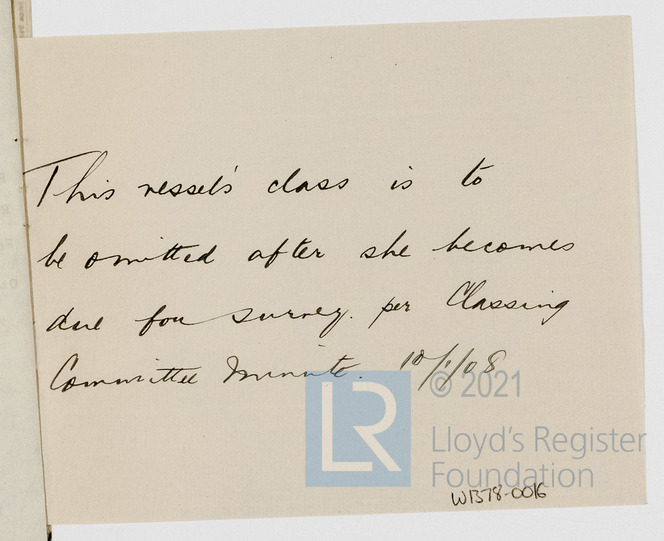 This vessel's class is to
be omitted after she becomes
due for survey. per Classing
Committee Minute. 10/1/08
© 2021
LR
Lloyd's Register
Foundation
W1378-0016